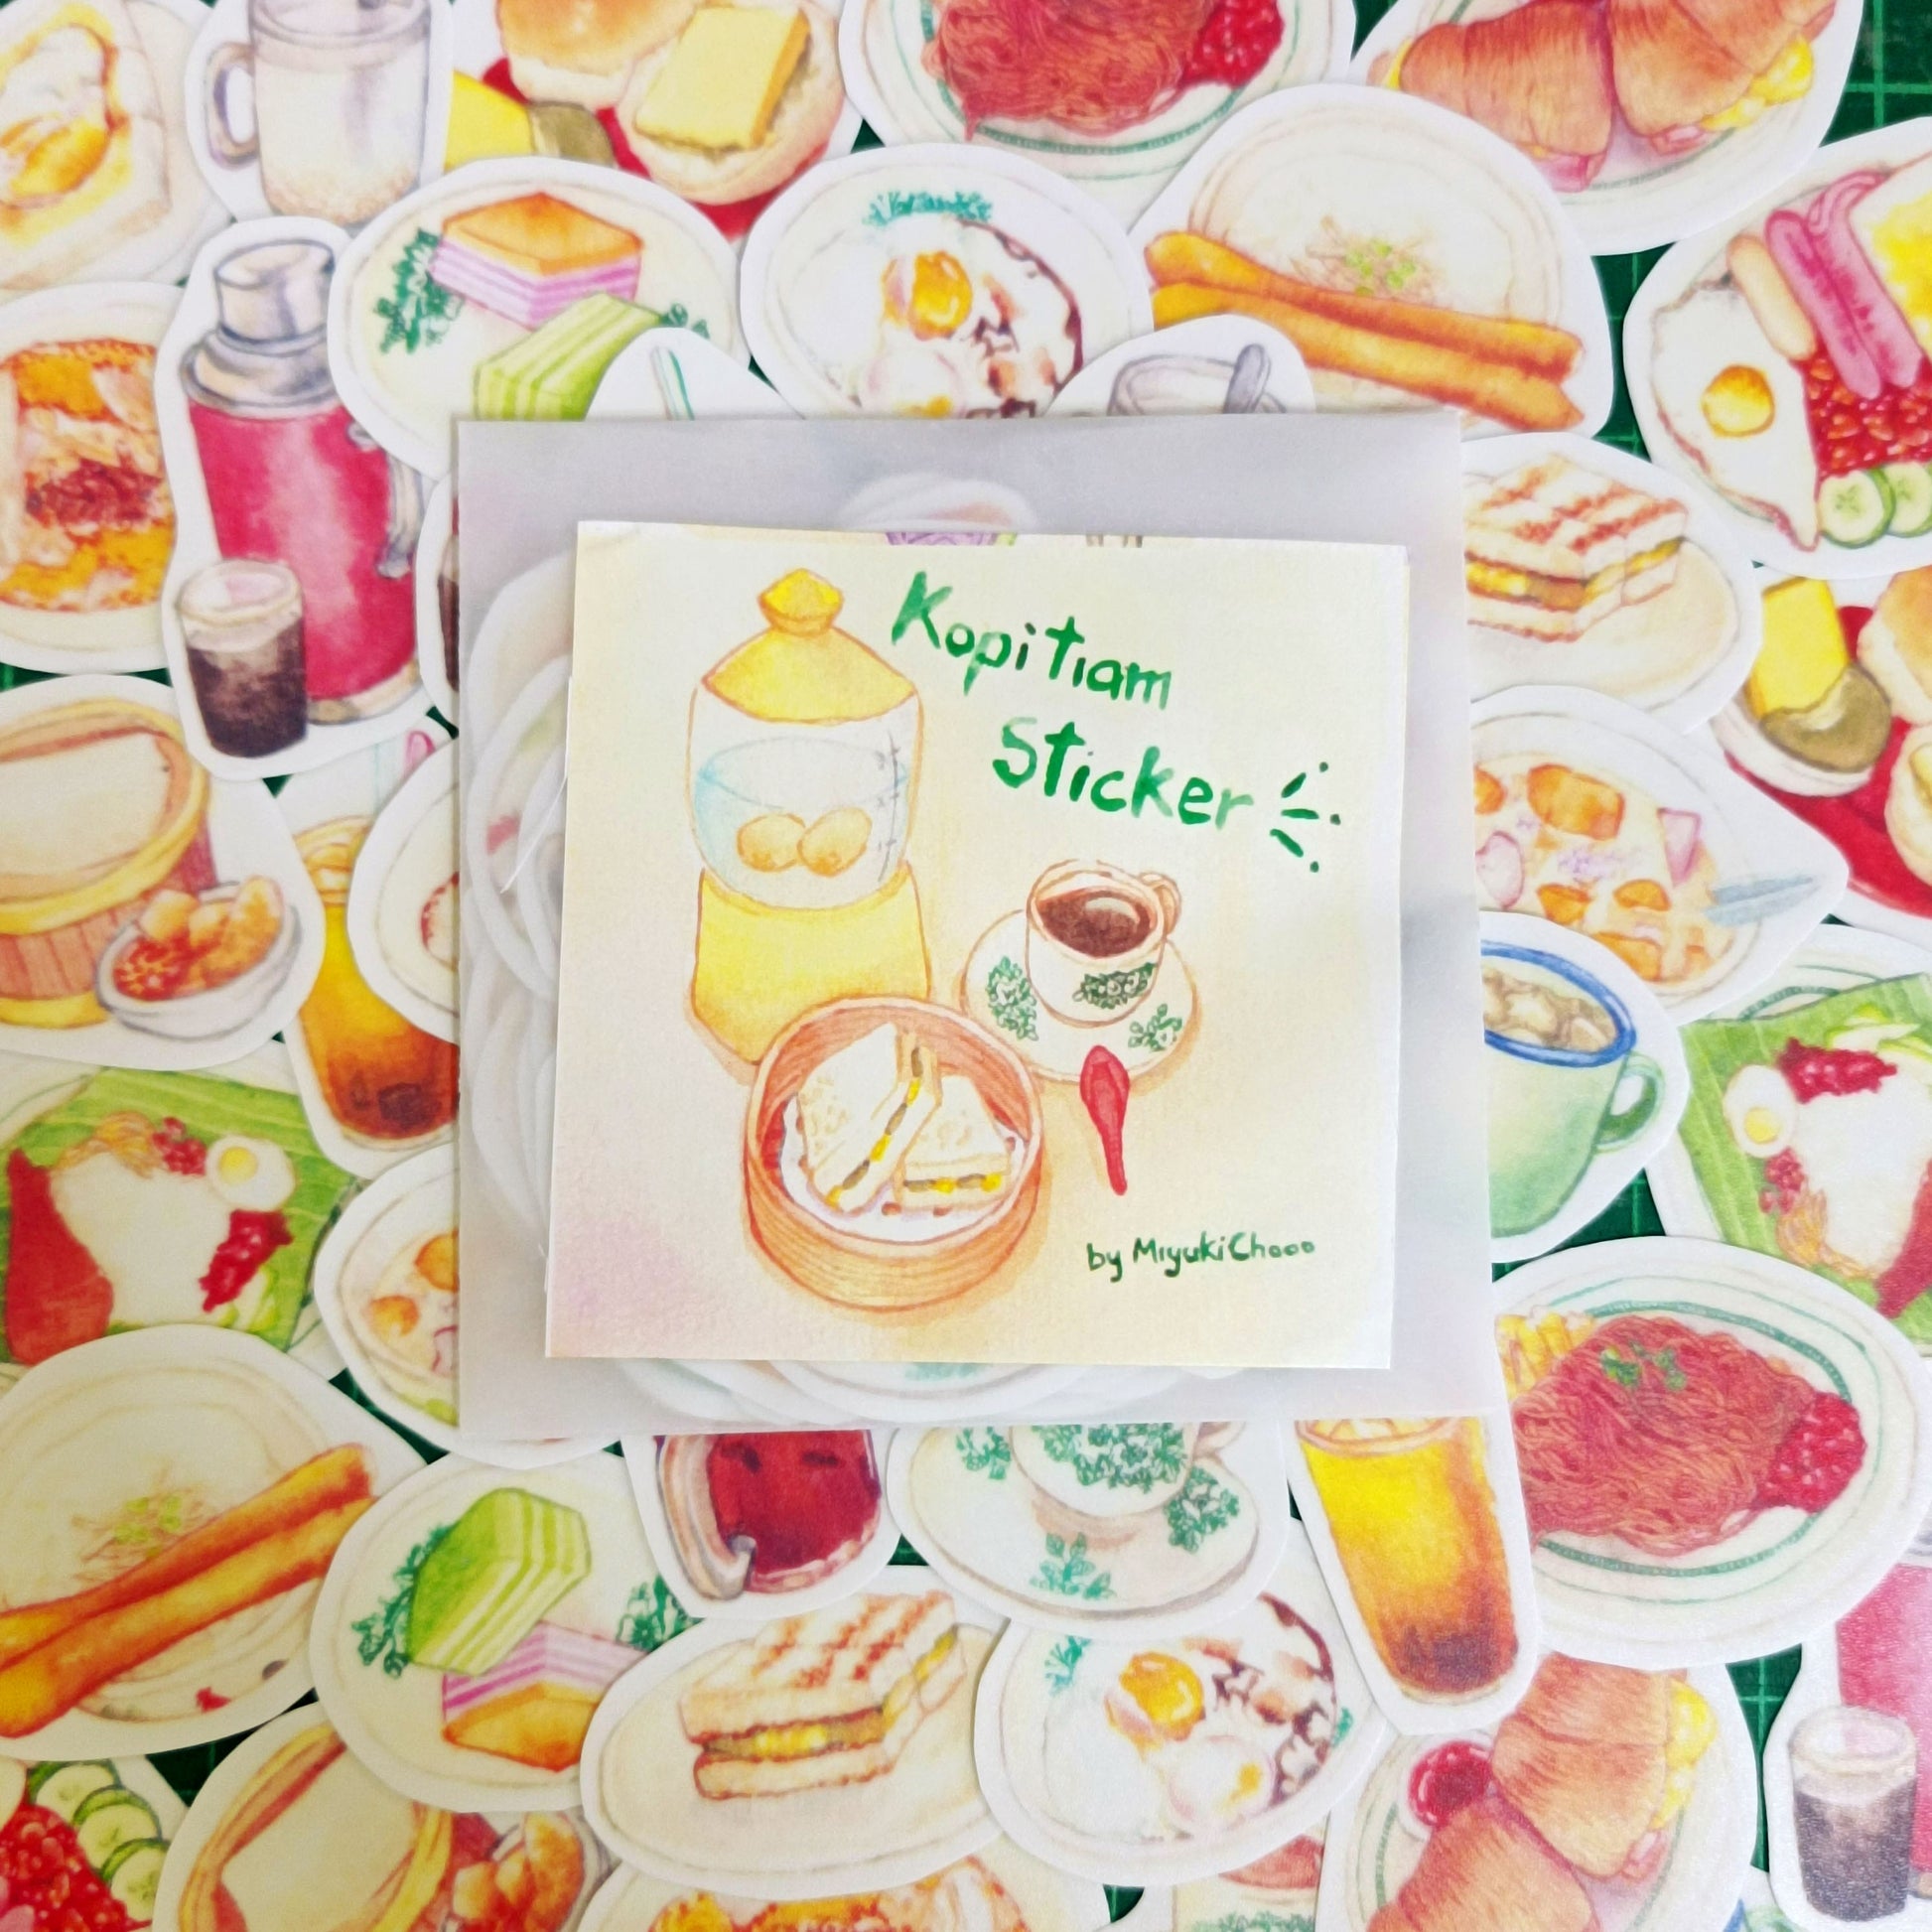 Kopitiam
Sticker
by MiyukiChooo